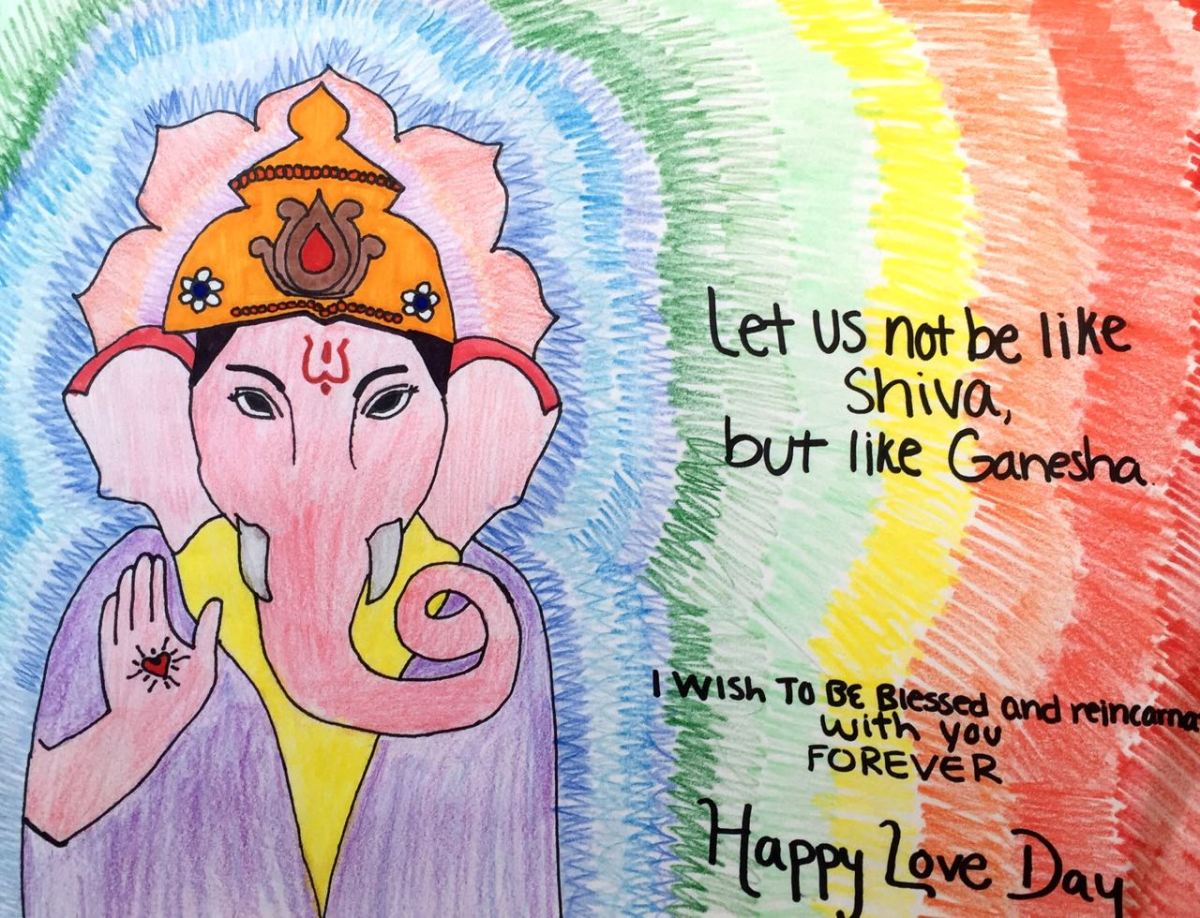 Let us not be like
Shiva,
but like Ganesha.
I WISH TO BE Blessed and reincarna
with you
FOREVER
Happy Love Day